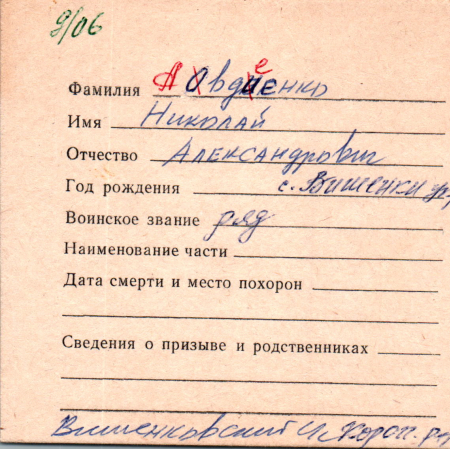 9/06
Фамилия Авдеенко
Имя Николай
Отчество Александрович
Год рождения с. Вишенки
Воинское звание ряд
Наименование части
Дата смерти и место похорон
Сведения о призыве и родственниках
Вишенковский